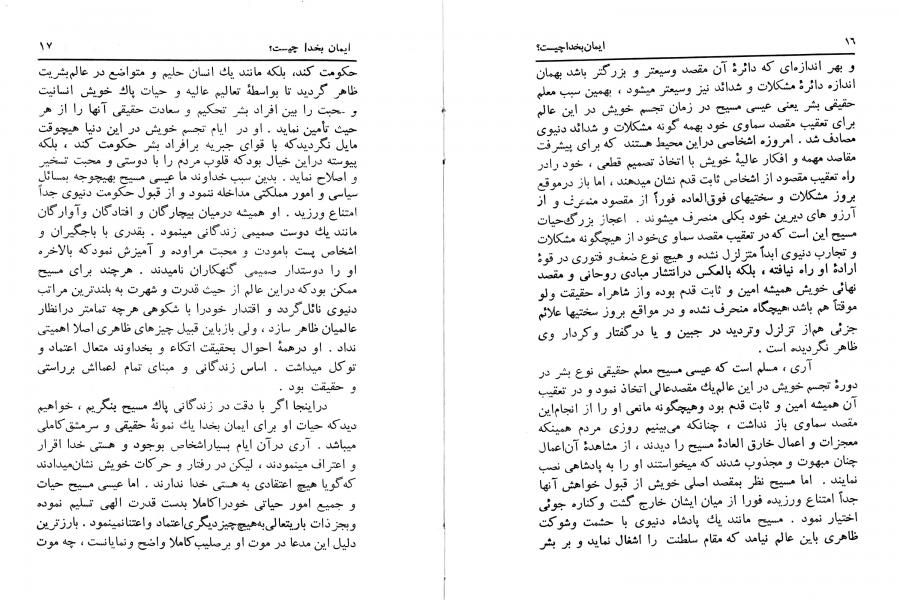 ۱٦ ایمان بخدا چیست؟
و بهر اندازه‌ای که دائرهٔ آن مقصد وسیعتر و بزرگتر باشد بهمان
اندازه دائرهٔ مشکلات و شدائد نیز وسیعتر میشود ، بهمین سبب معلم
حقیقی بشر یعنی عیسی مسیح در زمان تجسم خویش در این عالم
برای تعقیب مقصد سماوی خود بهمه گونه مشکلات و شدائد دنیوی
مصادف شد . امروزه اشخاصی دراین محیط هستند که برای پیشرفت
مقاصد مهمه و افکار عالیهٔ خویش با اتخاذ تصمیم قطعی ، خود رادر
راه تعقیب مقصود از اشخاص ثابت قدم نشان میدهند ، اما باز درموقع
بروز مشکلات و سختیهای فوق‌العاده فوراً از مقصود منحرف و از
آرزو های دیرین خود بکلی منصرف میشوند . اعجاز بزرگ‌حیات
مسیح این است که در تعقیب مقصد سماوی‌خود از هیچگونه مشکلات
و تجارب دنیوی ابداً متزلزل نشده و هیچ نوع ضعف‌و فتوری در قوهٔ
ارادهٔ او راه نیافته ، بلکه بالعکس درانتشار مبادی روحانی و مقصد
نهائی خویش همیشه امین و ثابت قدم بوده واز شاهراه حقیقت ولو
موقتاً هم باشد هیچگاه منحرف نشده و در مواقع بروز سختیها علائم
جزئی هم‌از تزلزل وتردید در جبین و یا درگفتار وکردار وی
ظاهر نگردیده است .
آری ، مسلم است که عیسی مسیح معلم حقیقی نوع بشر در
دورهٔ تجسم خویش در این عالم‌یك مقصدعالی اتخاذ نمود و در تعقیب
آن همیشه امین و ثابت قدم بود وهیچگونه مانعی او را از انجام‌این
مقصد سماوی باز نداشت ، چنانکه می‌بینیم روزی مردم همینکه
معجزات و اعمال خارق العادهٔ مسیح را دیدند ، از مشاهدهٔ آن‌اعمال
چنان مبهوت و مجذوب شدند که میخواستند او را به پادشاهی نصب
نمایند . اما مسیح نظر بمقصد اصلی خویش از قبول خواهش آنها
جداً امتناع ورزیده فورا از میان ایشان خارج گشت وکناره جوئی
اختیار نمود . مسیح مانند یك پادشاه دنیوی با حشمت وشوکت
ظاهری باین عالم نیامد که مقام سلطنت را اشغال نماید و بر بشر
ایمان بخدا چیست؟ ۱۷
حکومت کند، بلکه مانند یك انسان حلیم و متواضع در عالم‌بشریت
ظاهر گردید تا بواسطهٔ تعالیم عالیه و حیات پاك خویش انسانیت
و محبت را بین افراد بشر تحکیم و سعادت حقیقی آنها را از هر
حیث تأمین نماید . او در ایام تجسم خویش در این دنیا هیچوقت
مایل نگردیدکه با قوای جبریه برافراد بشر حکومت کند ، بلکه
پیوسته دراین خیال بودکه قلوب مردم را با دوستی و محبت تسخیر
و اصلاح نماید . بدین سبب خداوند ما عیسی مسیح بهیچوجه بمسائل
سیاسی و امور مملکتی مداخله ننمود و از قبول حکومت دنیوی جداً
امتناع ورزید . او همیشه درمیان بیچارگان و افتادگان وآوارگان
مانند یك دوست صمیمی زندگانی مینمود . بقدری با باجگیران و
اشخاص پست بامودت و محبت مراوده و آمیزش نمودکه بالاخره
او را دوستدار صمیمی گنهکاران نامیدند . هرچند برای مسیح
ممکن بودکه دراین عالم از حیث قدرت و شهرت به بلندترین مراتب
دنیوی نائل‌گردد و اقتدار خودرا با شکوهی هرچه تمامتر درانظار
عالمیان ظاهر سازد ، ولی بازباین قبیل چیزهای ظاهری اصلا اهمیتی
نداد . او درهمهٔ احوال بحقیقت اتکاء و بخداوند متعال اعتماد و
توکل میداشت . اساس زندگانی و مبنای تمام اعمالش برراستی
و حقیقت بود .
دراینجا اگر با دقت در زندگانی پاك مسیح بنگریم ، خواهیم
دیدکه حیات او برای ایمان بخدا یك نمونهٔ حقیقی و سرمشق‌کاملی
میباشد . آری درآن ایام بسیاراشخاص بوجود و هستی خدا اقرار
و اعتراف مینمودند ، لیکن در رفتار و حرکات خویش نشان‌میدادند
که‌گویا هیچ اعتقادی به هستی خدا ندارند . اما عیسی مسیح حیات
و جمیع امور حیاتی خودراکاملا بدست قدرت الهی تسلیم نموده
وبجزذات باریتعالی‌به‌هیچ‌چیزدیگری‌اعتماد واعتنانمینمود . بارزترین
دلیل این مدعا در موت او برصلیب‌کاملا واضح ونمایانست ، چه موت